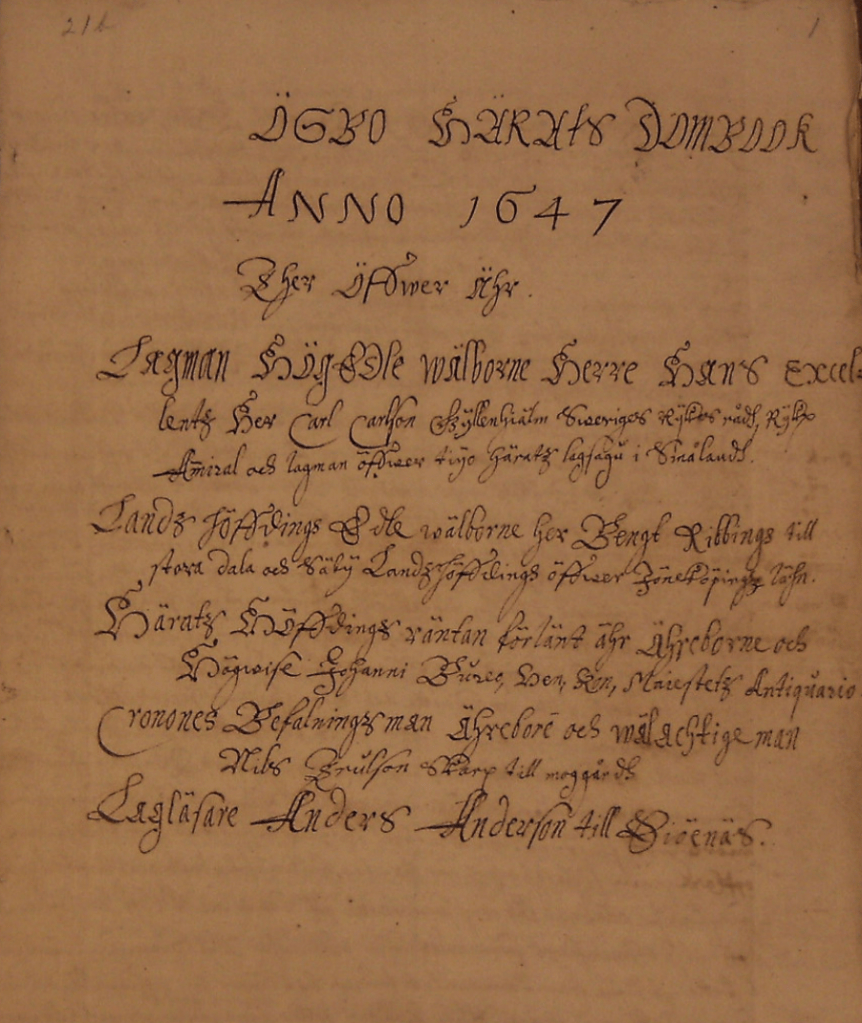 21b 1
ÖSBO HÄRAtS DOMBOOK
ANNO 1647
Ther Öffwer Ähr.
Lagman Hög Edle Wälborne Herre Hans Excel-
lentz Her Carl Carlson Gyllenhiälm Sweriges Rijkes rådh, Rijkz
Amiral och lagman öffwer tiyo häratz lagsagu i Smålandh.
Landz höffdings Edle wälborne her Bengt Ribbings till
stora dala och Säby Landzhöffdings öffwer Jöneköpings lähn.
Häratz Höffdings räntan förlänt ähr Ährborne och
Högwise Johanni Bureo, Hen, Kon, Maiestetz Antiquario
Cronones Befalningzman Ähreborē och wälachtige man
Nils Brulson Skarp till moggårdh
Lagläsare Anders Anderson till Siöenäs.